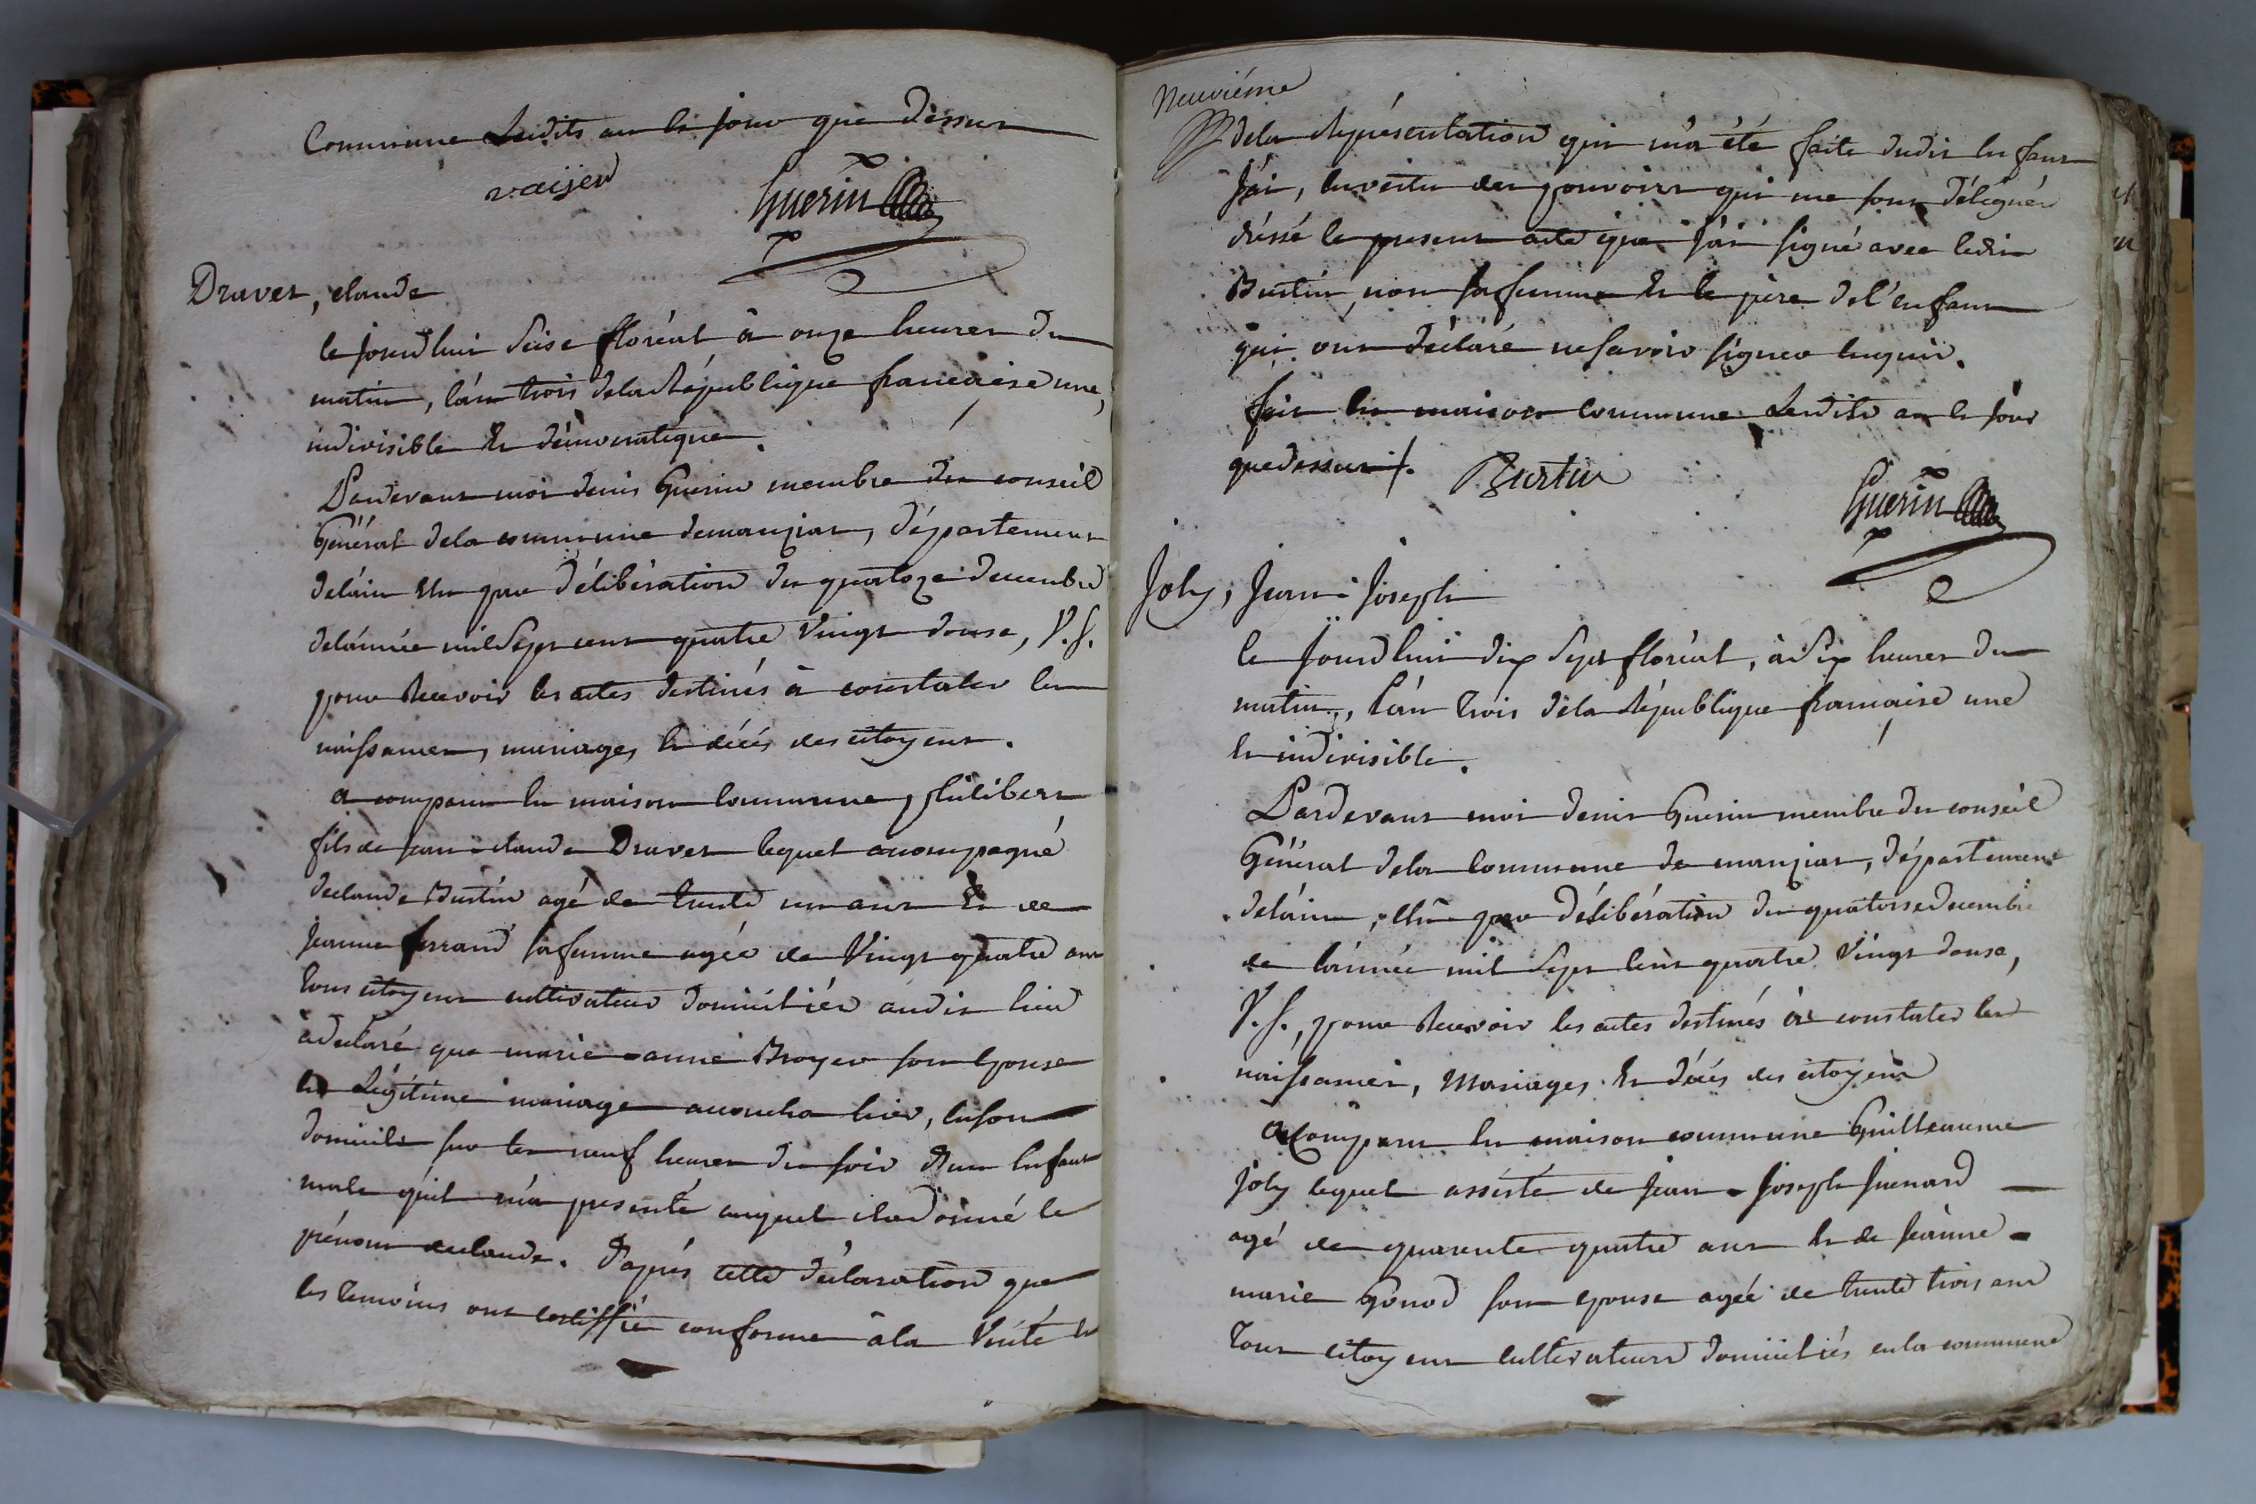 Commune Lesdits an et jour que dessus
vaijen
Guerin
Druvet, claude
le jourdhui seise floréal à onze heures du
matin, l'an trois de la République francaise une,
indivisible et démocratique.
Pardevant moi denis Guerin membre du conseil
Général de la commune demanziat, département
delain élu par délibération du quatoze decembre
delánnée mil Sept cent quatre Vingt douse, V.S.
pour Recevoir les actes destinés à constater les
naissances, mariages, et décés des citoyens.
a comparu en maison commune, philibert
fils de jean-claude Druvet lequel acompagné
declaude Burtin agé de trente un ans et de
jeanne ferrand sa femme agée de Vingt quatre ans
tous citoyens cultivateurs domiciliés audit lieu
à declaré que marie-anne Broyer son epouse
en Légitime mariage acoucha hier, en son
domicile sur les neuf heures du soir d'un Enfant
male qu'il m'a presenté auquel il a donné le
prénom declaude. D'aprés cette déclaration que
les temoins ont certiffié conforme à la Vérité et
Neuviéme
de la Représentation qui m'a été faite dudit Enfant
J'ai, en vertu des pouvoirs qui me sont délégués
dréssé le present acte que j'ai signé avec ledit
Burtin, non sa femme et le père de l'enfant
qui ont déclaré ne savoir signer enquis.
fait en maison commune Lesdits an et jour
que dessus.
Burtin
Guerin
Joly, Jean-Joseph
le Jourdhui dix Sept floréal, à Six heures du
matin, l'an trois de la République francaise une
et indivisible.
Pardevant moi denis Guerin membre du conseil
Général de la Commune de manziat, département
delain, élu par délibération du quatorse decembre
de lánnée mil Sept cent quatre Vingt douse,
V.S., pour Recevoir les actes destinés à constater les
naissances, Mariages, et décés des citoyens
a Comparu en maison commune Guilleaume
Joly lequel assisté de Jean-Joseph
agé de quarente quatre ans et de jeanne-
marie Gonod son epouse agée de trente trois ans
Tous citoyens cultivateurs domiciliés en la commune